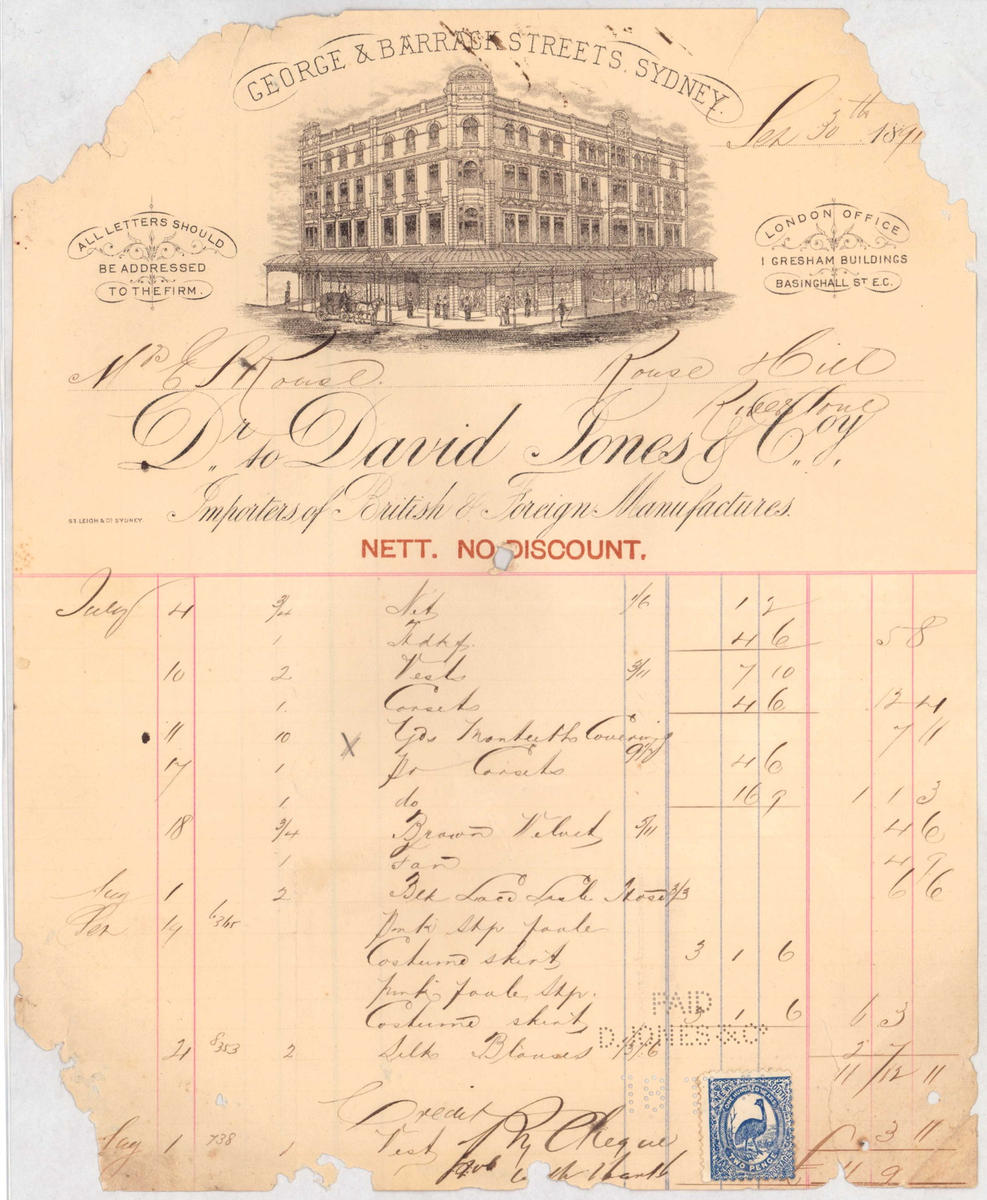 GEORGE & BARRACK STREETS. SYDNEY.
Sep 30th 1891
ALL LETTERS SHOULD
BE ADDRESSED
TO THE FIRM.
LONDON OFFICE
1 GRESHAM BUILDINGS
BASINGHALL ST E.C.
Mrs E S Rouse. Rouse Hill
Riverstone
Dr. to David Jones & Coy.
Importers of British & Foreign Manufactures.
S.T. LEIGH & Co SYDNEY.
NETT. NO DISCOUNT.
July 4 3/4 Net 1/6 1 2
1 Hdkf. 4 6 5 8
10 2 Vests 3/11 7 10
1 Corsets 4 6 12 4
11 10 x Yds Covering 9½ 7 11
17 1 Pr Corsets 4 6
1 do 16 9 1 1 3
18 3/4 Brown Velvet 5/11 4 6
1 Fan 4 9
Aug 1 2 Blk Lace Lisle Hose 3/3 6 6
Sep 19 6365 Pink Stp
Costume skirt 3 1 6
pink Stp.
Costume skirt 3 1 6 6 3
21 8353 2 Silk Blouses 2 7
11 / 12 11
PAID
D. JONES & Co
Credit
Aug 1 738 1 Vest 3 11
By Cheque
11 9
ONE HUNDRED YEARS
TWO PENCE